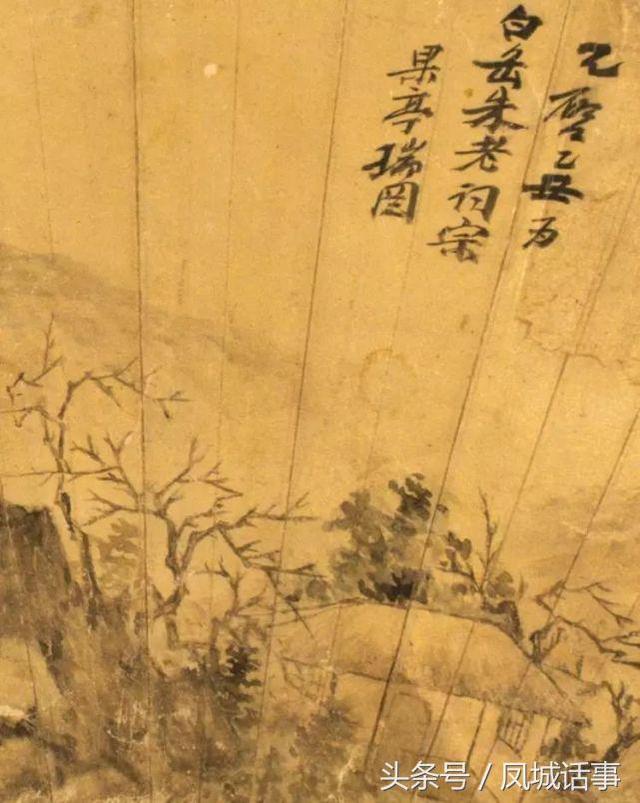 天啓乙丑为
白岳朱老词宗
果亭瑞图
头条号／凤城话事